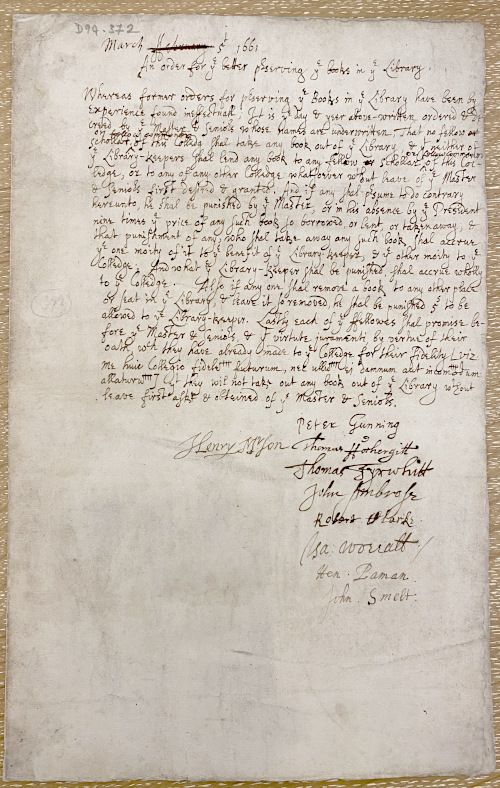 D94.372
March 5º 1661
An order for yᵉ better pserving yᵉ books in yᵉ Library.
Whereas former orders for pserving yᵉ Books in yᵉ Library have been by
experience found ineffectuall. It is yᵉ day & year above-written, ordered & De
creed by yᵉ Master & Seniors whose names are underwritten, That no fellow or
scholar of this Colledg shal take any book out of yᵉ Library, & yᵗ neither of
yᵉ Library-keepers shal lend any book to any fellow or scholar of this Col-
ledge, or to any of any other Colledge whatsoever wᵗʰout leave of yᵉ Master
& Seniors first desired & granted. And if any shal psume to do contrary
hereunto, he shal be punished by yᵉ Master, or in his absence by yᵉ President
nine times yᵉ price of any such book so borrowed, or lent, or taken away, &
that punishment of any, who shal take away any such book shal accrue
yᵉ one moity of it to yᵉ benefit of yᵉ Library-keeper, & yᵉ other moity to yᵉ
Colledge: And what yᵉ Library-keeper shal be punished, shal accrue wholly
to yᵉ Colledge. Also if any one shal remove a book to any other place
or seat in yᵉ Library & leave it so removed, he shal be punished to be
allowed to yᵉ Library-keeper. Lastly each of yᵉ ffellowes shal promise be-
fore yᵉ Master & Seniors, & yᵗ virtute juramenti by vertue of their
oath wᶜʰ they have already made to yᵉ Colledge for their fidelity [viz.
Me huic Collegio fidelem futurum, nec ullum ei damnum aut incomodum
allaturum] that they wil not take out any book out of yᵉ Library wᵗʰout
leave first askt & obtained of yᵉ Master & Seniors.
Peter Gunning
Henry Thomas
Thomas
John Ambrose
Robert Clarke
Isa: Worrall
Hen: Paman.
John Smelt: